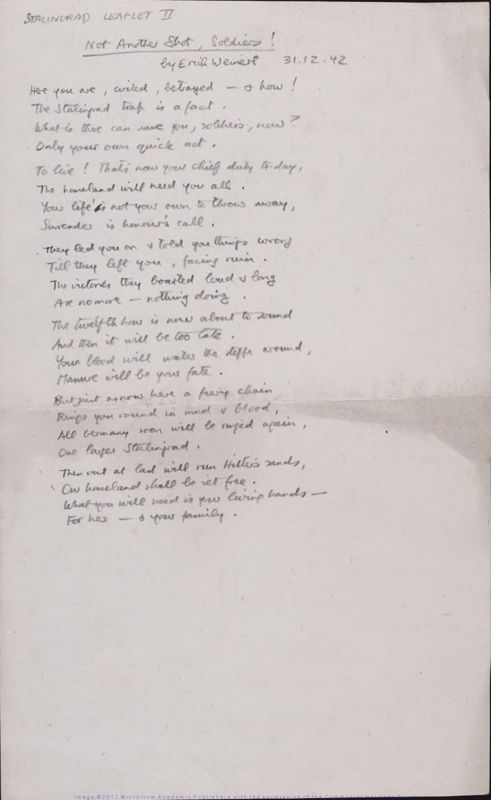 STALINGRAD LEAFLET II
Not Another Shot, Soldiers!
by Erich Weinert 31.12.42
Here you are, circled, betrayed — & how!
The Stalingrad trap is a fact.
What is there can save you, soldiers, now?
Only your own quick act.
To live! That's now your chief duty to-day,
The homeland will need you all.
Your life's not your own to throw away,
Surrender is honour's call.
They led you on & told you things wrong
Till they left you, facing ruin.
The victories they boasted loud & long
Are no more — nothing doing.
The twelfth hour is now about to sound
And then it will be too late.
Your blood will water the steppe around,
Manure will be your fate.
But just as now here a chain
Rings you round in mud & blood,
All Germany soon will be ringed again,
One larger Stalingrad.
Then out at last will run Hitler's sands,
Our homeland shall be set free.
What you will need is your living hands —
For her — & your family.
Image ©2012 Microform Academic Publishers with the permission of the